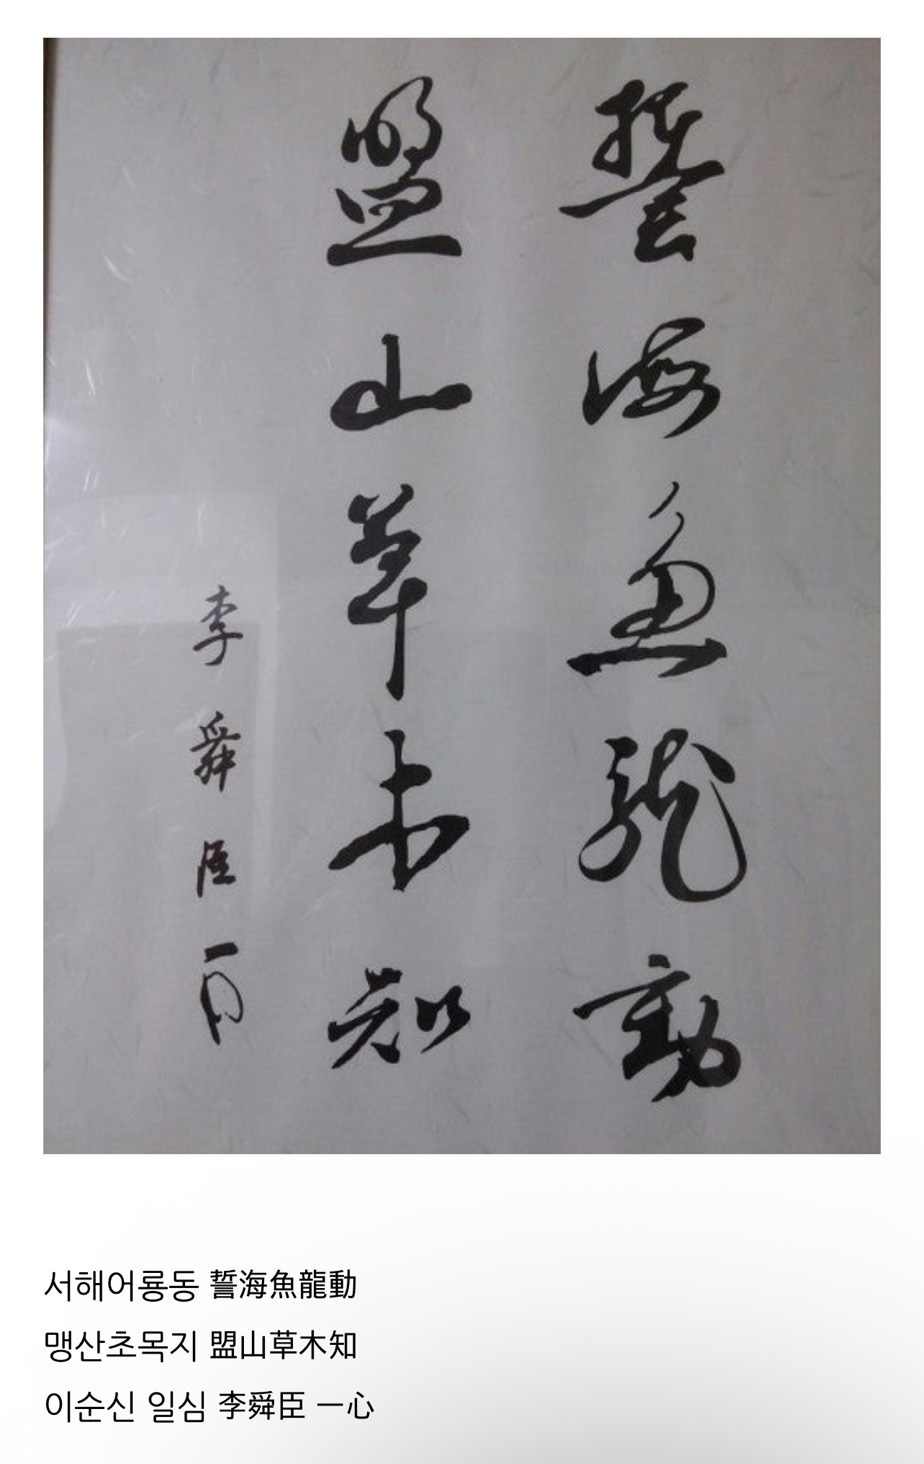 誓海魚龍動
盟山草木知
李舜臣 一心
서해어룡동 誓海魚龍動
맹산초목지 盟山草木知
이순신 일심 李舜臣 一心